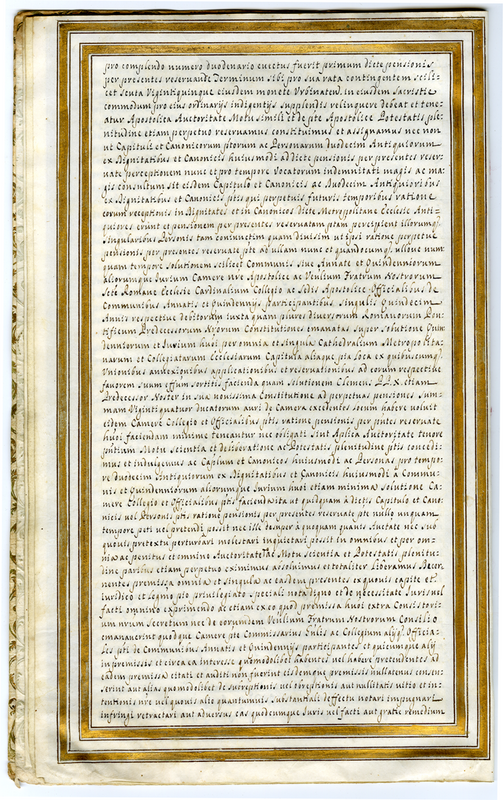 pro complendo numero duodenario evectus fuerit primum dicte pensionis
per presentes reservande Terminum sibi pro sua rata contingentem scili-
cet scuta Vigintiquinque eiusdem monete Urbinaten. in eiusdem Sacristie
commodum pro eius ordinarijs indigentijs supplendis relinquere debeat et tene-
atur Apostolica Auctoritate Motu simili et de pte Apostolice Potestatis ple-
nitudine etiam perpetuo reservamus constituimus et assignamus nec non
ut Capituli et Canonicorum ptorum ac Personarum duodecim Antiquiorum
ex Dignitatibus et Canonicis huiusmodi ad dicte pensionis per presentes reser-
vate perceptionem nunc et pro tempore Vocatorum indemnitati magis ac ma-
gis consultum sit eisdem Capitulo et Canonicis ac Duodecim Antiquioribus
ex Dignitatibus et Canonicis ptis qui perpetuis futuris temporibus ratione
eorum receptionis in Dignitates et in Canonicos Dicte Metropolitane Ecclesie Anti-
quiores erunt et pensionem per presentes reservatam ptam percipient illorumq.
singularibus Personis tam coniunctim quam divisim ut ipsi ratione perpetue
pensionis per presentes reservate pte ad ullam nunc et quandocumq. ullove nunc
quam tempore solutionem scilicet Communis sive Annate et Quindenniorum
aliorumque Iurium Camere nre Apostolice ac Venlium Fratrum Nostrorum
Scte Romane Ecclesie Cardinalium Collegio ac Sedis Apostolice Officialibus de
Communibus Annatis et Quindennijs Participantibus singulis Quindecim
Annis respective debitorum iuxta quam plures diversorum Romanorum Pon-
tificum Predecessorum Nrorum Constitutiones emanatas super solutione Quin-
denniorum et Iurium huoi per omnia et singula Cathedralium Metropolita-
narum et Collegiatarum Ecclesiarum Capitula aliaque pia loca ex quibuscumq.
Unionibus annexionibus applicationibus et reservationibus ad eorum respective
favorem suum effum sortitis facienda quam Clemens PP. X. etiam
Predecessor Noster in sua novissima Constitutione ad perpetuas pensiones sum-
mam Vigintiquatuor ducatorum auri de Camera excedentes locum habere voluit
eidem Camere Collegio et Officialibus ptis ratione pensionis per pntes reservate
huoi faciendam minime teneantur nec obligati sint Aplica Auctoritate tenore
Motu scientia et deliberatione ac Potestatis plenitudine ptis concedi-
mus et indulgemus ac Caplum et Canonicos huiusmodi ac Personas pro tempo-
re duodecim Antiquiorum ex Dignitatibus et Canonicis huiusmodi à Commu-
nis et Quindenniorum aliorumque Iurium huoi etiam minima solutione Ca-
mere Collegio et Officialibus ptis facienda ita ut quidquam à dictis Capitulo et Cano-
nicis vel Personis ptis ratione pensionis per presentes reservate pte nullo unquam
tempore peti vel pretendi possit nec ille semper à quoquam quavis Auctate nec sub
quovis pretextu perturbari molestari inquietari possit in omnibus et per om-
nia ac penitus et omnino Auctoritate Motu scientia et Potestatis plenitu-
dine paribus etiam perpetuo eximimus absolvimus et totaliter Liberamus Decer-
nentes premissa omnia et singula ac easdem presentes ex quovis capite et
iuridico et legno pto privilegiato speciali nota digno et de necessitate Iuris vel
facti omnino exprimendo ac etiam ex eo quod premissa huoi extra Consistori-
um nrum secretum nec de eorumdem Venlium Fratrum Nostrorum Consilio
emanaverint quodque Camere pte Commissarius Gnlis ac Collegium alijq. Officia-
les pti de Communibus Annatis et Quindennijs participantes et quicumque alij
in premissis et circa ea interesse quomodolibet habentes vel habere pretendentes ad
eadem premissa citati et auditi non fuerint eisdemque premissis nullatenus consen-
serint aut alias quomodolibet de surreptionis vel obreptionis aut nullitatis vitio et in-
tentionis nre vel quovis alio quantumvis substantiali deffectu notari impugnari
infringi retractari aut adversus eas quodcumque Iuris vel facti aut gratie remedium